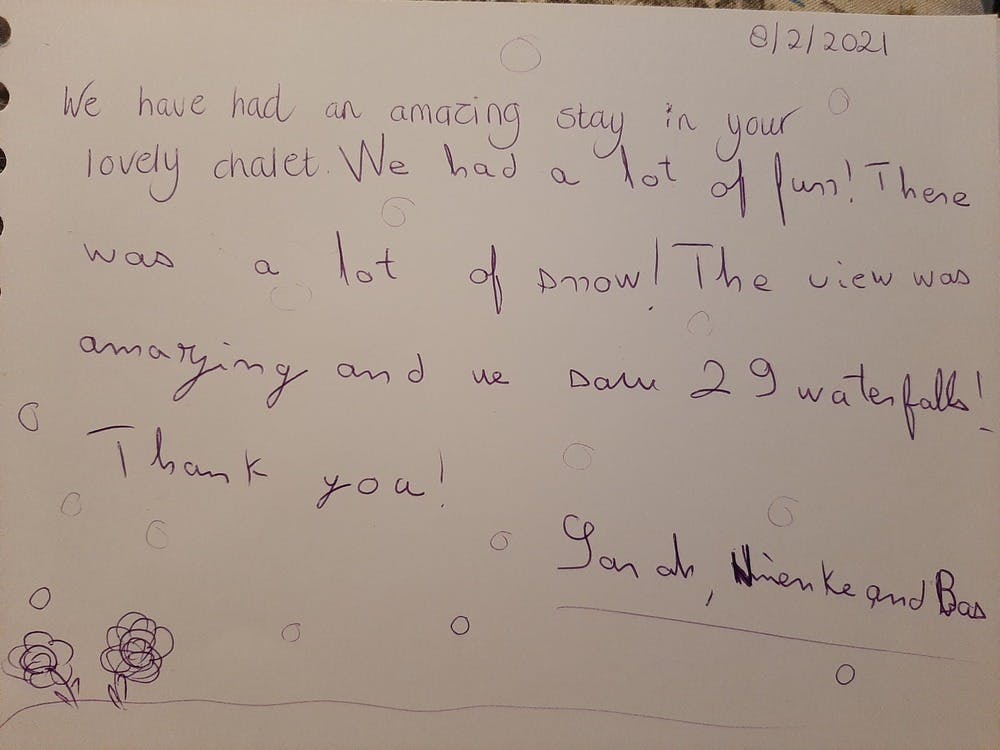 8/2/2021
We have had an amazing stay in your
lovely chalet. We had a lot of fun! There
was a lot of snow! The view was
amazing and we saw 29 waterfalls!
Thank you!
Sarah, Nienke and Bas